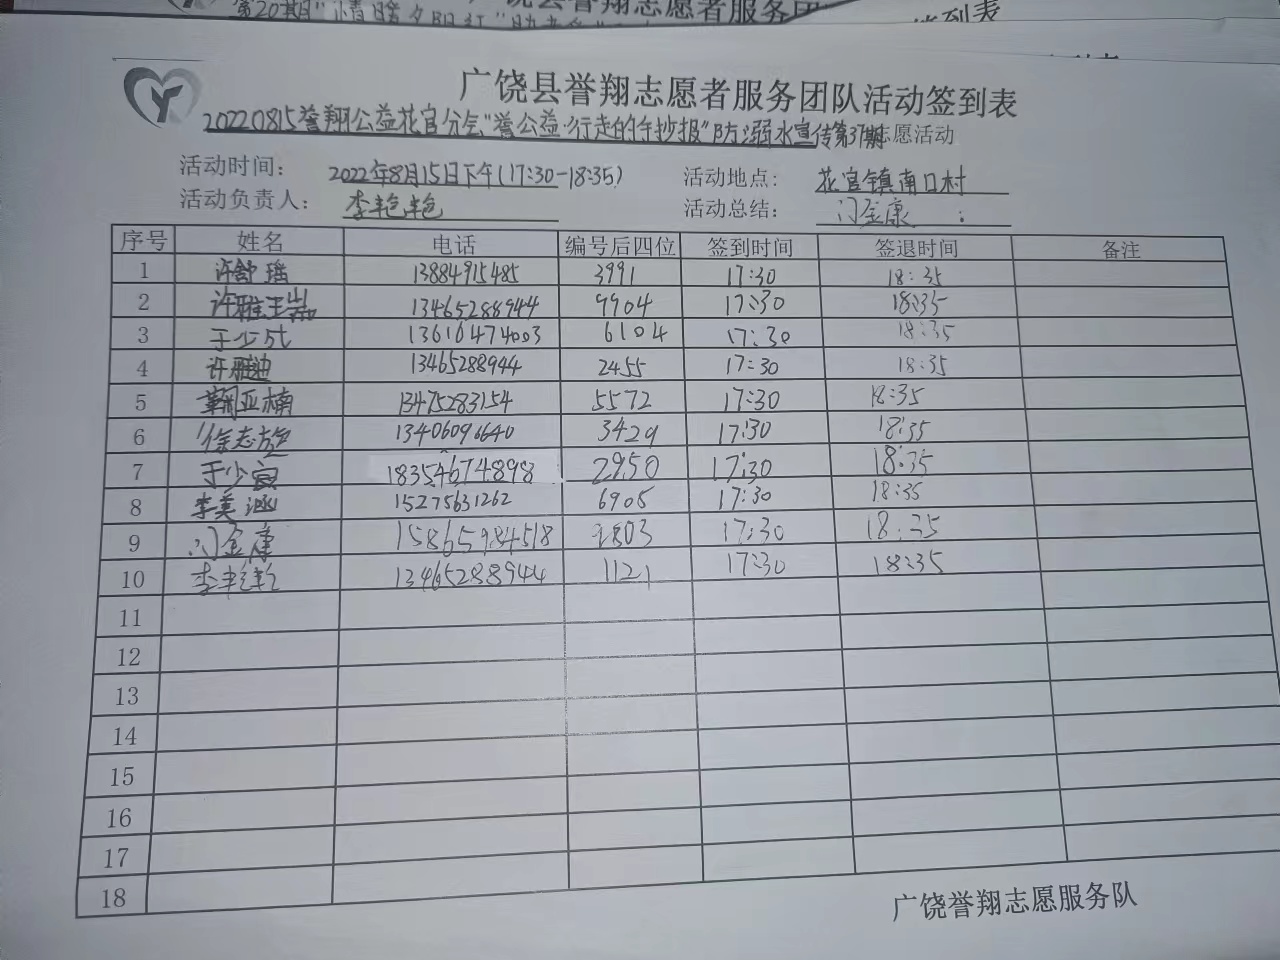 第20期"情暖夕阳红"
广饶县誉翔志愿者服务团队活动签到表
20220815誉翔公益花官分会"益公益·行走的手抄报"防溺水宣传第37期志愿活动
活动时间： 2022年8月15日下午(17:30-18:35) 活动地点: 花官镇南口村
活动负责人： 李艳艳 活动总结: 门金康
序号 姓名 电话 编号后四位 签到时间 签退时间 备注
1 许舒瑶 13884915485 3991 17:30 18:35
2 许雅 13465288944 9904 17:30 18:35
3 于少成 13616474003 6104 17:30 18:35
4 许雅迪 13465288944 2455 17:30 18:35
5 亚楠 13475283154 5572 17:30 18:35
6 徐志旋 13406096640 3429 17:30 18:35
7 于少寅 18354674898 2950 17:30 18:35
8 李美涵 15275631262 6905 17:30 18:35
9 门金康 15865984518 2803 17:30 18:35
10 李艳艳 13465288944 1121 17:30 18:35
11
12
13
14
15
16
17
18
广饶誉翔志愿服务队